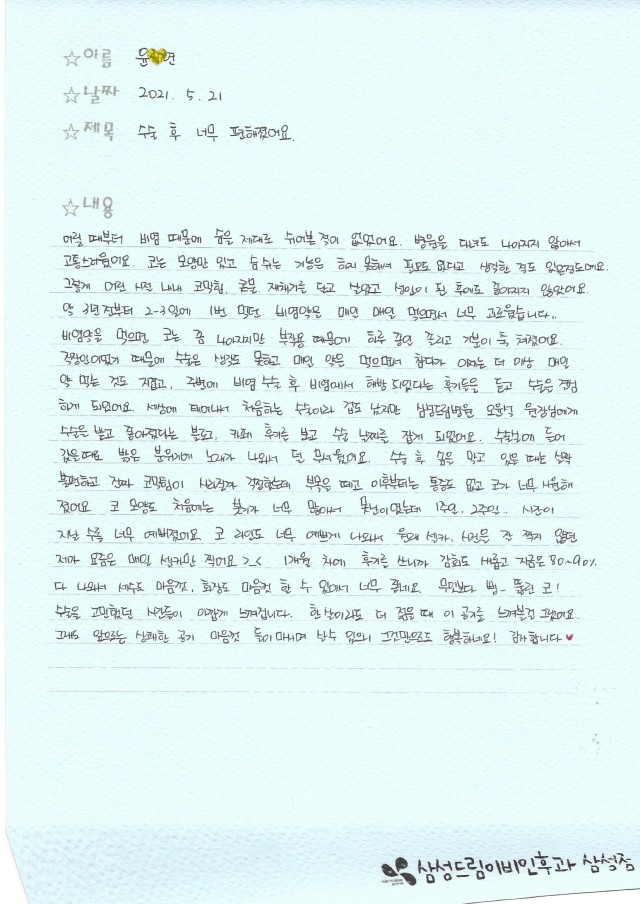 ☆이름 윤💛연
☆날짜 2021. 5. 21
☆제목 수술 후 너무 편해졌어요.
☆내용
어릴 때부터 비염 때문에 숨을 제대로 쉬어본 적이 없었어요. 병원을 다녀도 나아지지 않아서
고통스러웠어요. 코는 모양만 있고 숨 쉬는 기능은 하지 못해서 필요도 없다고 생각한 적도 있을정도에요.
그렇게 어린 시절 내내 코막힘, 콧물, 재채기를 달고 살았고 성인이 된 후에도 좋아지지 않았어요.
약 3년 전부터 2-3일에 1번 먹던 비염약은 매일 매일 먹으면서 너무 괴로웠습니다..
비염약을 먹으면 코는 좀 나아지지만 부작용 때문에 하루 종일 졸리고 기분이 축 쳐졌어요.
직장인이었기 때문에 수술은 생각도 못하고 매일 약은 먹으면서 참다가 이제는 더 이상 매일
약 먹는 것도 지겹고, 주변에 비염 수술 후 비염에서 해방 되었다는 후기들을 듣고 수술을 결정
하게 되었어요. 세상에 태어나서 처음하는 수술이라 겁도 났지만 삼성드림병원 오윤석 원장님에게
수술을 받고 좋아졌다는 블로그, 카페 후기를 보고 수술 날짜를 잡게 되었어요. 수술실에 들어
갔을때도 밝은 분위기에 노래가 나와서 덜 무서웠어요. 수술 후 솜을 막고 있을 때는 살짝
불편하고 진짜 코막힘이 사라질까 걱정했는데 부목을 떼고 이후부터는 통증도 없고 코가 너무 시원해
졌어요 코 모양도 처음에는 붓기가 너무 많아서 못난이였는데 1주일.. 2주일.. 시간이
지날 수록 너무 예뻐졌어요. 코 라인도 너무 예쁘게 나와서 원래 셀카, 사진은 잘 찍지 않던
제가 요즘은 매일 셀카만 찍어요 >_< 1개월 차에 후기를 쓰니까 감회도 새롭고 지금은 80~90%
다 나와서 세수도 마음껏, 화장도 마음껏 할 수 있어서 너무 좋네요. 무엇보다 뻥~ 뚫린 코!
수술을 고민했던 시간들이 아깝게 느껴집니다. 한 살이라도 더 젊을 때 이 공기를 느껴볼걸 그랬어요..
그래도 앞으로는 상쾌한 공기 마음껏 들이마시며 살 수 있으니 그것만으로도 행복하네요! 감사합니다 ♥
삼성드림이비인후과 삼성점